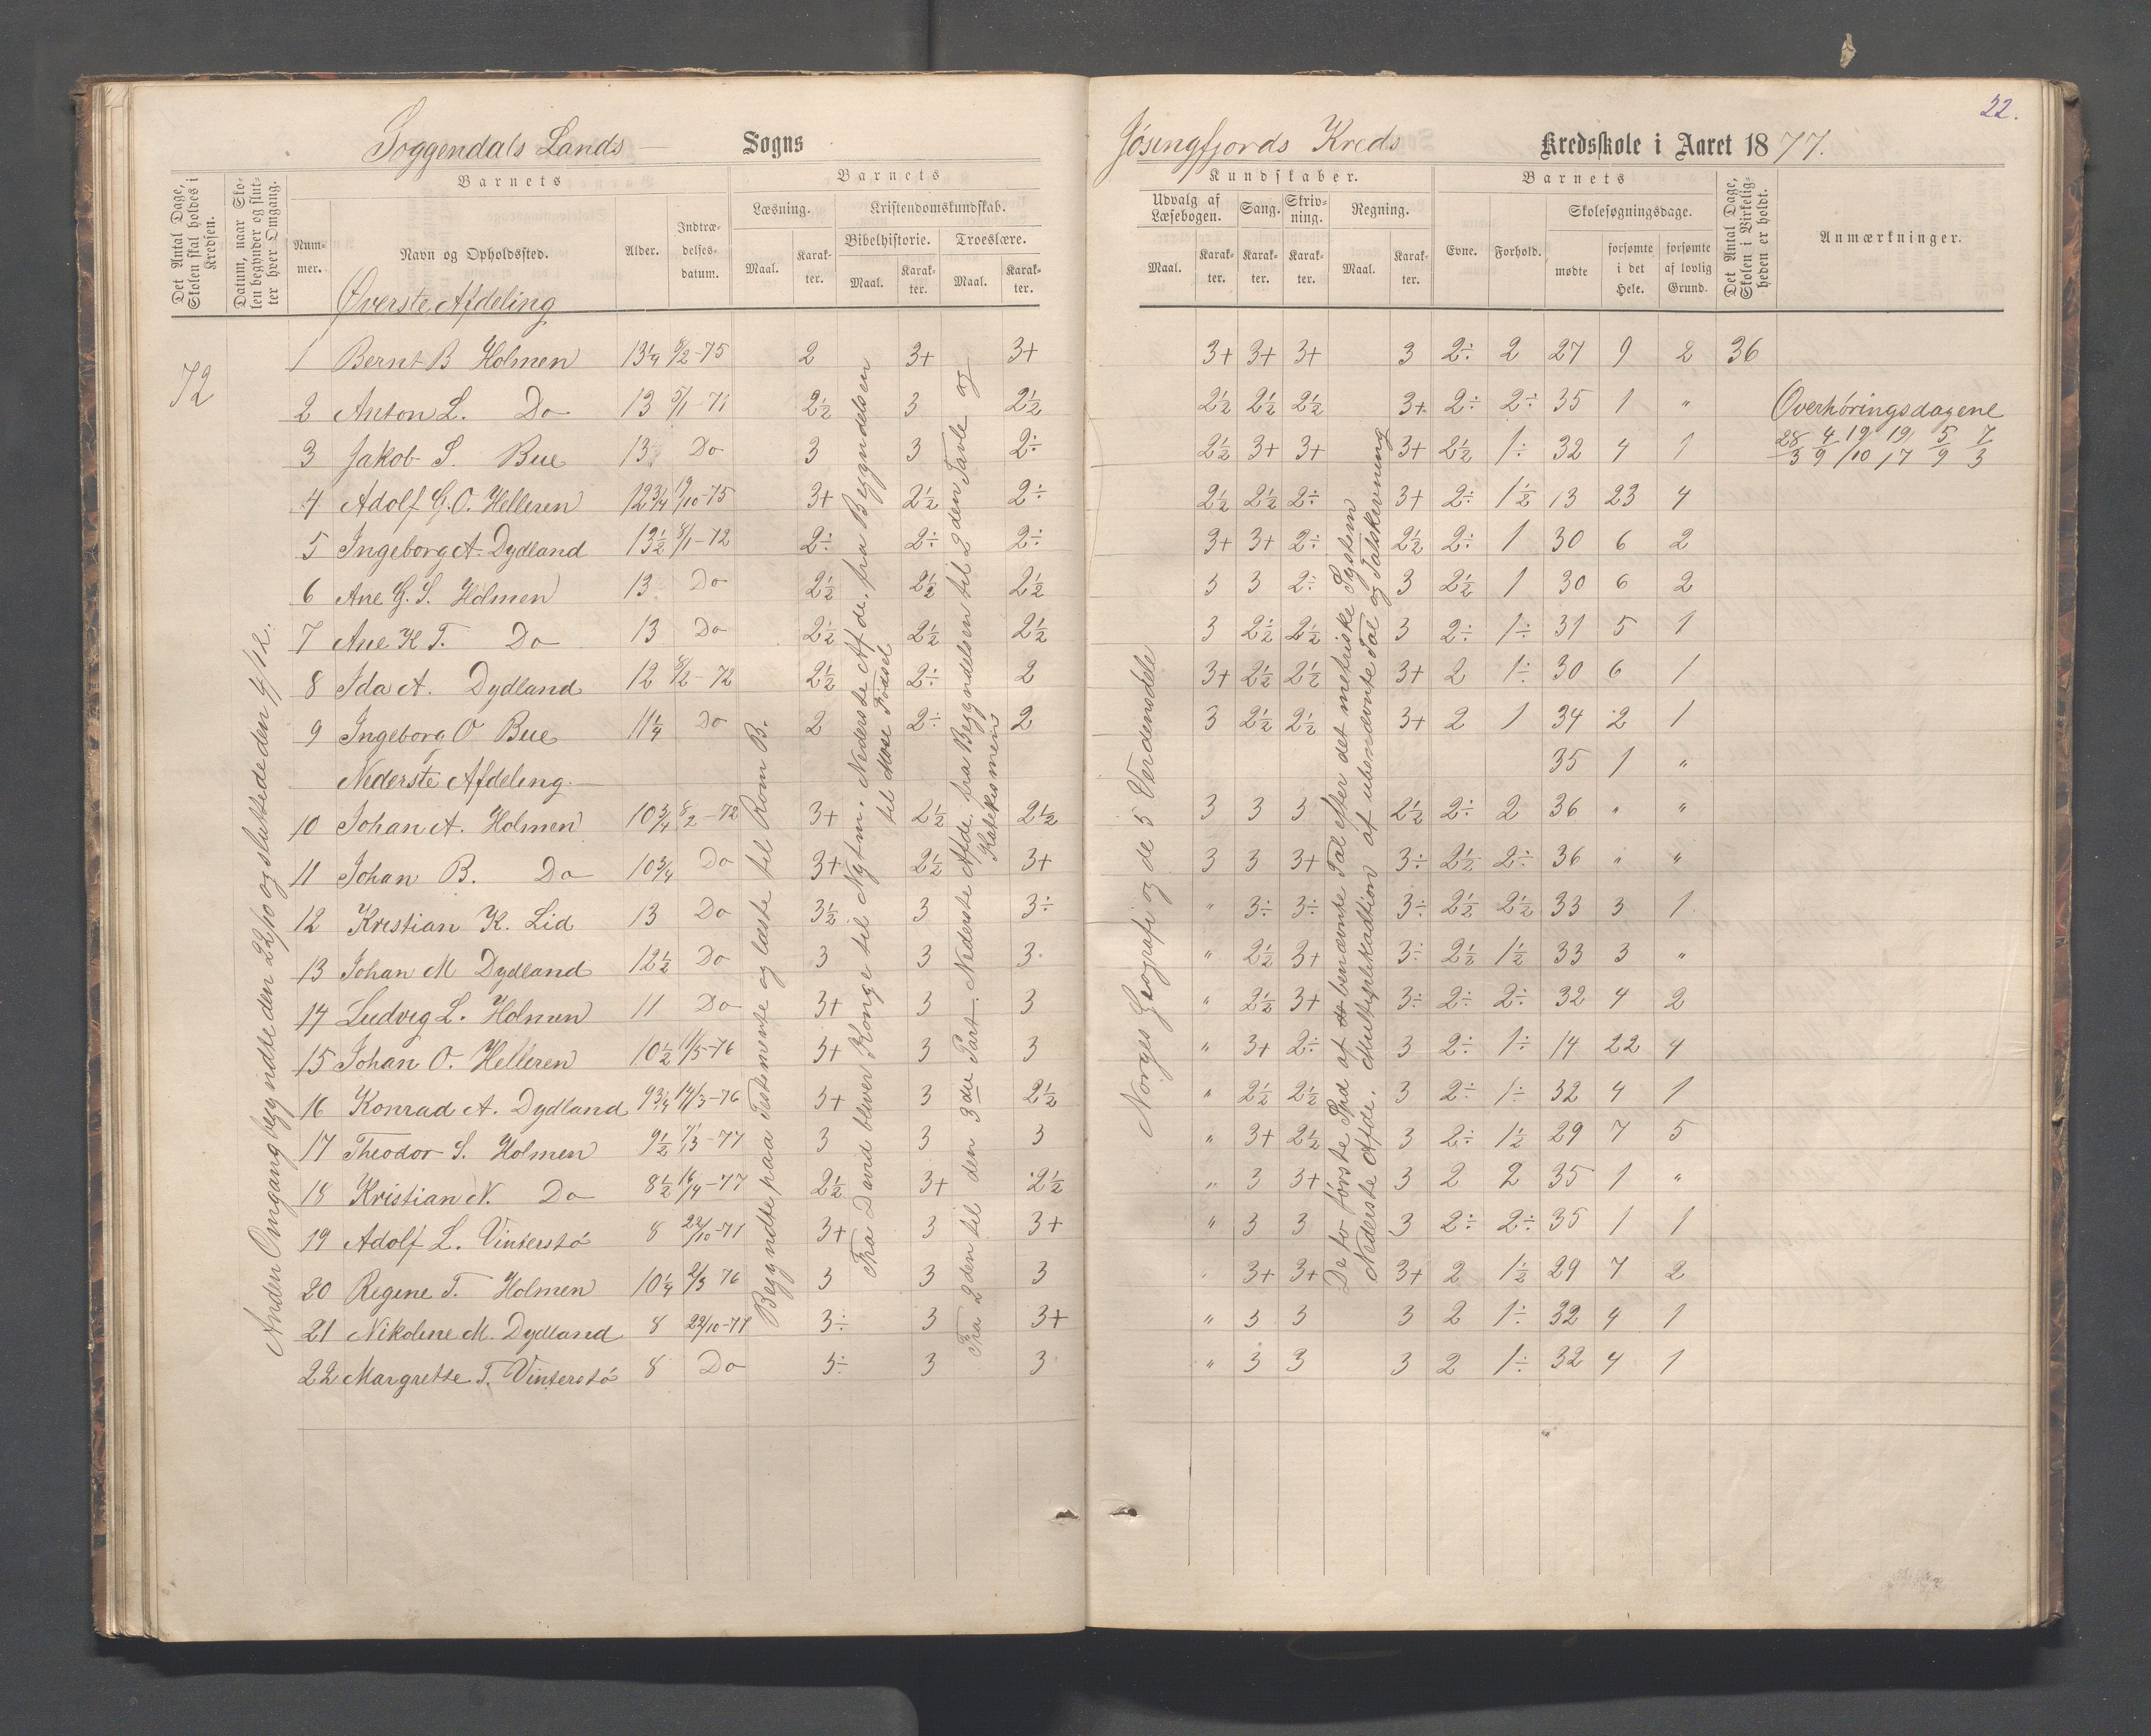 22.
Soggendals Lands Sogns Jösingfjords Kreds Kredsskole i Aaret 1877.
Det Antal Dage, Skolen skal holdes i Kredsen.
Datum, naar Skolen begynder og slutter hver Omgang.
Barnets
Nummer.
Navn og Opholdssted.
Alder.
Indtrædelsesdatum.
Barnets
Læsning.
Maal.
Karakter.
Kristendomskundskab.
Bibelhistorie.
Maal.
Karakter.
Troeslære.
Maal.
Karakter.
Kundskaber.
Udvalg af Læsebogen.
Maal.
Karakter.
Sang.
Karakter.
Skrivning.
Karakter.
Regning.
Maal.
Karakter.
Barnets
Evne.
Forhold.
Skolesøgningsdage.
mødte
forsømte i det Hele.
forsømte af lovlig Grund.
Det Antal Dage, Skolen i Virkeligheden er holdt.
Anmærkninger.
72
Anden Omgang begyndte den 22/10 og sluttede den 4/12.
Øverste Afdeling
1 Bernt B Holmen 13 1/4 8/2-75 2 3+ 3+ 3+ 3+ 3+ 3 2÷ 2 27 9 2 36
2 Anton L. Do 13 5/1-71 2 1/2 3 2 1/2 2 1/2 2 1/2 2 1/2 3+ 2÷ 2÷ 35 1 " Overhöringsdagene
3 Jakob S. Bue 13 Do 3 3 2÷ 2 1/2 3+ 3+ 3+ 2 1/2 1÷ 32 4 1 28/3 4/9 19/10 19/7 5/9 7/3
4 Adolf G.O. Helleren 12 3/4 19/10-75 3+ 2 1/2 2÷ 2 1/2 2 1/2 2÷ 3+ 2÷ 1 1/2 13 23 4
5 Ingeborg A. Dydland 13 1/2 8/1-72 2÷ 2÷ 2÷ 3+ 3+ 2÷ 2 1/2 2÷ 1 30 6 2
6 Ane G. S. Holmen 13 Do 2 1/2 2 1/2 2 1/2 3 3 2÷ 3 2 1/2 1 30 6 2
7 Ane K T. Do 13 Do 2 1/2 2 1/2 2 1/2 3 2 1/2 2 1/2 3 2÷ 1÷ 31 5 1
8 Ida A. Dydland 12 8/2-72 2 1/2 2÷ 2 3+ 2 1/2 2 1/2 3+ 2 1÷ 30 6 1
9 Ingeborg O Bue 11 1/4 Do 2 2÷ 2 3 2 1/2 2 1/2 3+ 2 1 34 2 1
Nederste Afdeling. 35 1 "
10 Johan A. Holmen 10 3/4 8/2-72 3+ 2 1/2 2 1/2 3 3 3 2 1/2 2÷ 2 36 " "
11 Johan B. Do 10 3/4 Do 3+ 2 1/2 3+ 3 3 3+ 3÷ 2 1/2 2÷ 36 " "
12 Kristian K. Lid 13 Do 3 1/2 3 3÷ " 3÷ 3÷ 3÷ 2 1/2 2 1/2 33 3 1
13 Johan M Dydland 12 1/2 Do 3 3 3 " 2 1/2 3+ 3÷ 2 1/2 1 1/2 33 3 "
14 Ludvig L. Holmen 11 Do 3+ 3 3 " 2 1/2 3+ 3÷ 2÷ 2÷ 32 4 2
15 Johan O. Helleren 10 1/2 11/5-76 3+ 3 3 " 3+ 2÷ 3 2÷ 1÷ 14 22 4
16 Konrad A. Dydland 9 3/4 14/3-76 3+ 3 2 1/2 " 2 1/2 2 1/2 3 2÷ 1÷ 32 4 1
17 Theodor S. Holmen 9 1/2 7/3-77 3 3 3 " 3+ 2 1/2 3 2÷ 1 1/2 29 7 5
18 Kristian N. Do 8 1/2 16/4-77 2 1/2 3+ 2 1/2 " 3 3+ 3 2 2 35 1 "
19 Adolf L. Vinterstö 8 22/10-77 3+ 3 3+ " 3 3 3 2÷ 2÷ 35 1 1
20 Regine T. Holmen 10 1/4 2/3 76 3 3 3 " 3+ 3+ 3+ 2 1 1/2 29 7 2
21 Nikoline M. Dydland 8 22/10-77 3÷ 3 3+ " 3 3 3 2 1÷ 32 4 1
22 Margrette T. Vinterstö 8 Do 3÷ 3 3 " 3 3 3 2 1÷ 32 4 1
Begyndte paa Testamente og læste til Rom B.
Fra David bliver Konge til Nytm. Nederste Afde. fra Begyndelsen
til Mose Födsel
Fra 2den til den 3die Part. Nederste Afde. fra Begyndelsen til 2den Tavle og
Katekismen
Norges Geografi og de 5 Verdensdele
De to förste Spd af benævnte Tal efter det metriske System
Nederste Afde. Multiplikation af ubenævnte Tal og Talskrivning